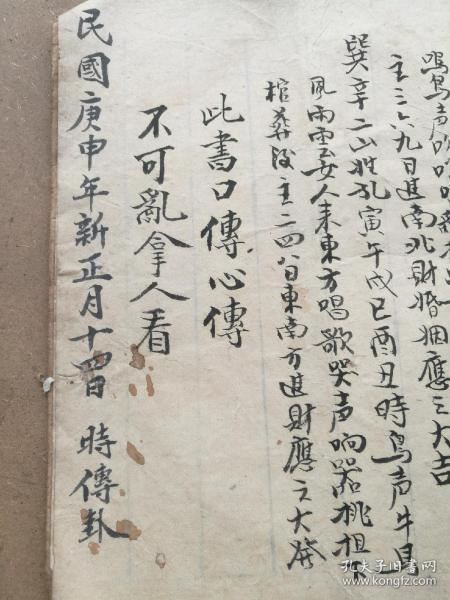 鸣鳥声
主三六九日進南北財婚姻應之大吉
巽辛二山壯孔寅午戍巳酉丑時鳥声牛
風雨雲女人来東方唱歌哭声响器桃
棺葬後主二四八日東南方進財應之大發
此書口傳心傳
不可亂拿人看
民國庚申年新正月十四日 時傳卦
孔夫子旧书网
www.kongfz.com